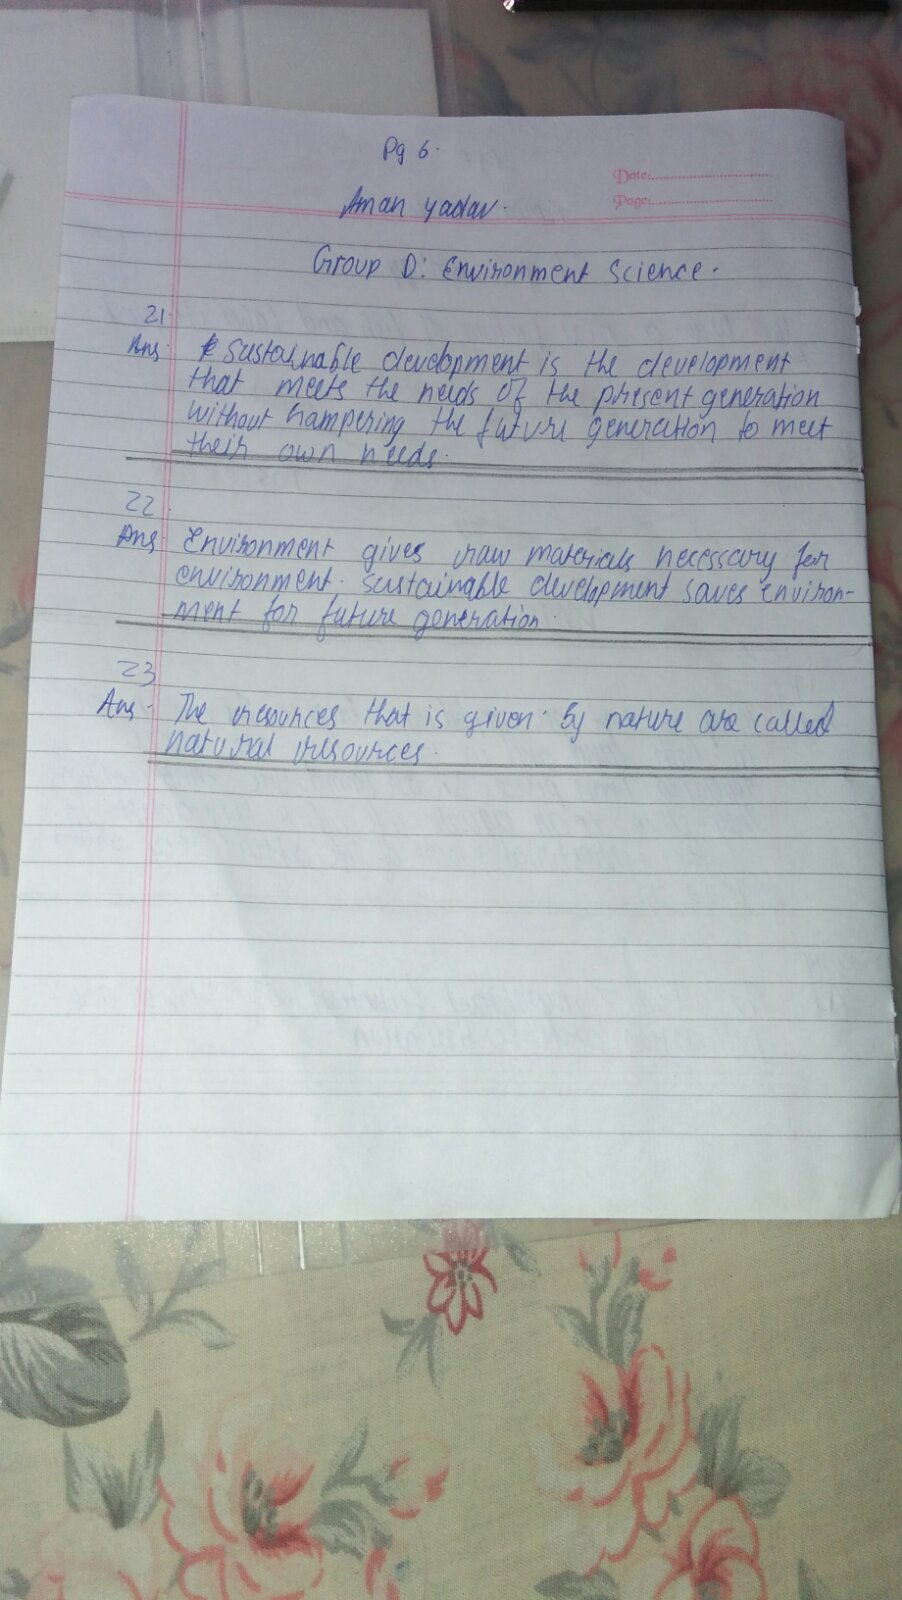 Pg 6.
Date:
Page:
Aman Yadav.
Group D: Environment Science.
21.
Ans. Sustainable development is the development
that meets the needs of the present generation
without hampering the future generation to meet
their own needs.
22.
Ans. Environment gives raw materials necessary for
environment. Sustainable development saves environ-
ment for future generation.
23
Ans. The resources that is given by nature are called
natural resources.